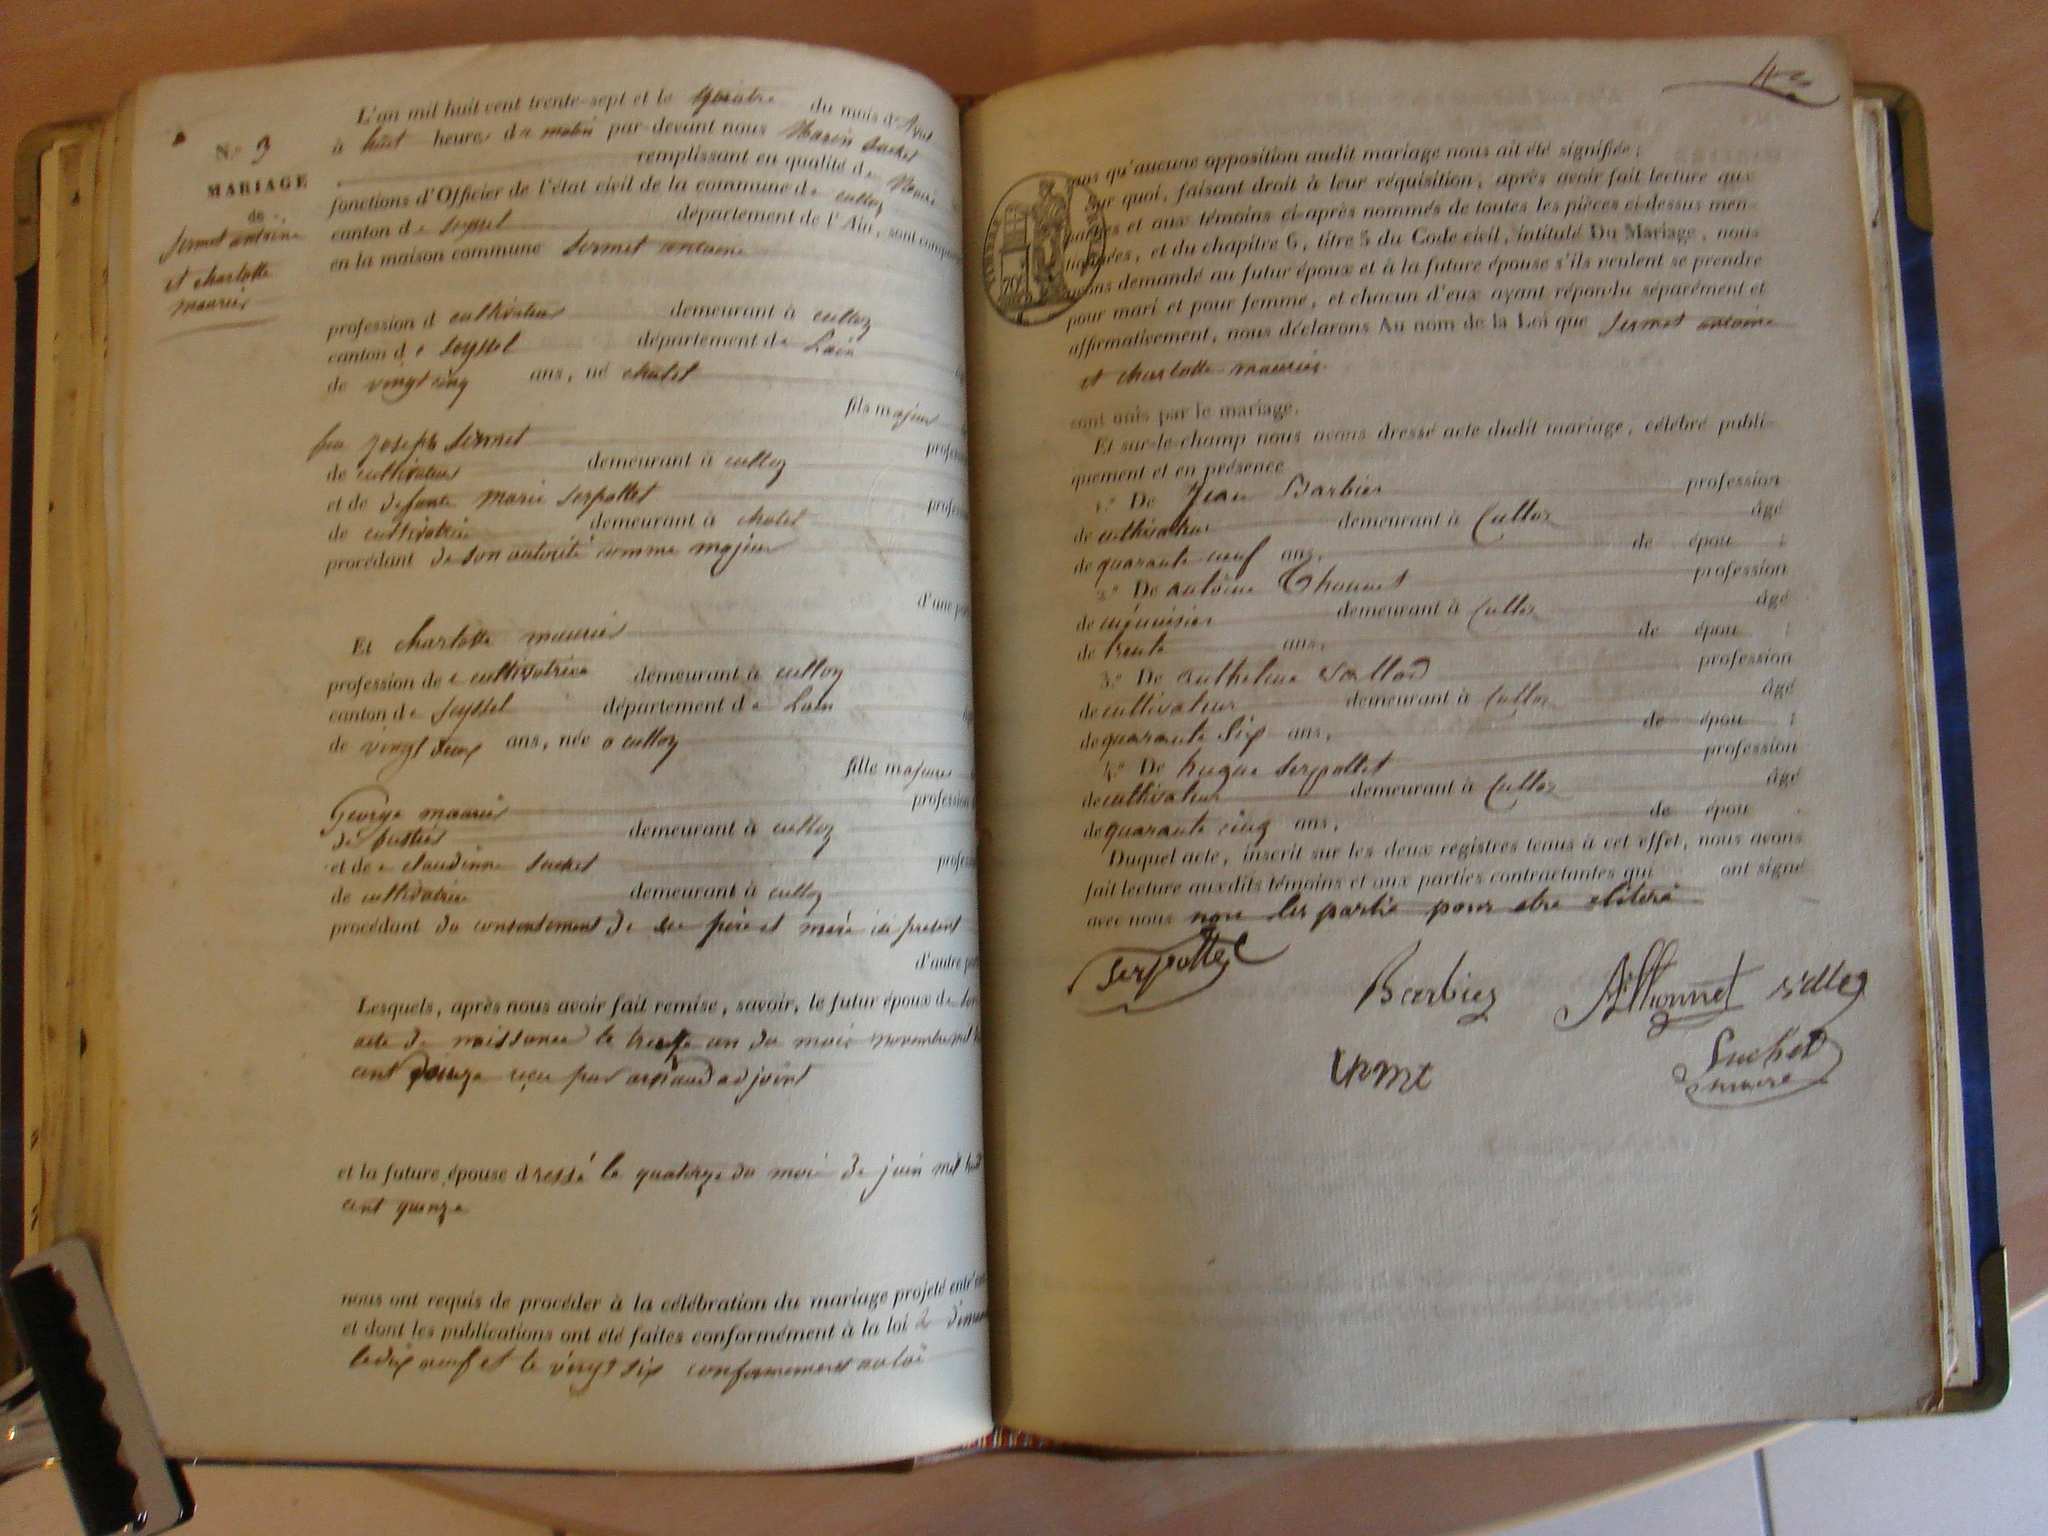 L'an mil huit cent trente-sept et le quatre du mois d'Avril
à huit heures du matin par-devant nous Marin Suchet
remplissant en qualité de Maire
fonctions d'Officier de l'état civil de la commune de culloz
canton de Seyssel département de l'Ain, sont comparus
en la maison commune Sermet antoine
N.o 3
MARIAGE
de
Sermet antoine
et charlotte
maurier
profession d cultivateur demeurant à culloz
canton de Seyssel département de Lain
de vingt cinq ans, né chalet
fils majeur
feu joseph Sermet
de cultivateur demeurant à culloz
et de defunte marie serpollet
de cultivatrice demeurant à chalet
procédant de son autorité comme majeur
d'une part
Et charlotte maurier
profession de cultivatrice demeurant à culloz
canton de Seyssel département de Lain
de vingt deux ans, née a culloz
fille majeure
George maurier profession
de demeurant à culloz
et de claudinne Suchet
de cultivatrice demeurant à culloz
procédant du consentement de se père et mère ici present
d'autre part
Lesquels, après nous avoir fait remise, savoir, le futur époux de son
acte de naissance le trente un du mois novembre mil
cent reçu par adjoint
et la future épouse dressé le quatorze du mois de juin mil huit
cent quinze
nous ont requis de procéder à la célébration du mariage projeté entr'eux
et dont les publications ont été faites conformément à la loi
le dix neuf et le vingt six conformement au loi
4
sans qu'aucune opposition audit mariage nous ait été signifiée;
Sur quoi, faisant droit à leur réquisition, après avoir fait lecture aux
parties et aux témoins ci-après nommés de toutes les pièces ci-dessus men-
tionnées, et du chapitre 6, titre 5 du Code civil, intitulé Du Mariage, nous
avons demandé au futur époux et à la future épouse s'ils veulent se prendre
pour mari et pour femme, et chacun d'eux ayant répondu séparément et
affirmativement, nous déclarons Au nom de la Loi que Sermet antoine
et charlotte maurier
sont unis par le mariage.
Et sur-le-champ nous avons dressé acte dudit mariage, célébré publi-
quement et en présence
1.o De Jean Barbier profession
de cultivateur demeurant à Culloz âgé
de quarante neuf ans, de épou ;
2.o De antoine Thonnet profession
de menuisier demeurant à Culloz âgé
de trente ans, de épou ;
3.o De anthelme profession
de cultivateur demeurant à Culloz âgé
de quarante six ans, de épou ;
4.o De hugue Serpollet profession
de cultivateur demeurant à Culloz âgé
de quarante cinq ans, de épou .
Duquel acte, inscrit sur les deux registres tenus à cet effet, nous avons
fait lecture auxdits témoins et aux parties contractantes qui ont signé
avec nous non les partie pour etre eliteré
Serpollet Barbier AThonnet
Suchet
maire